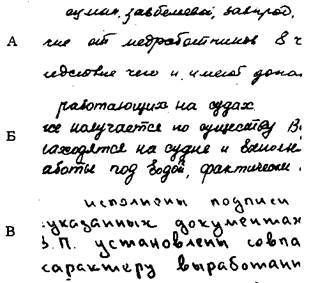 А чие от медработников в ч
едствие чего и имеют дона
работающих на судах.
Б же получается по существу В
находятся на судне и выполн
аботы под водой, фактически
исполнены подписи
указанных документах
В В.П. установлены совпа
характеру выработанн